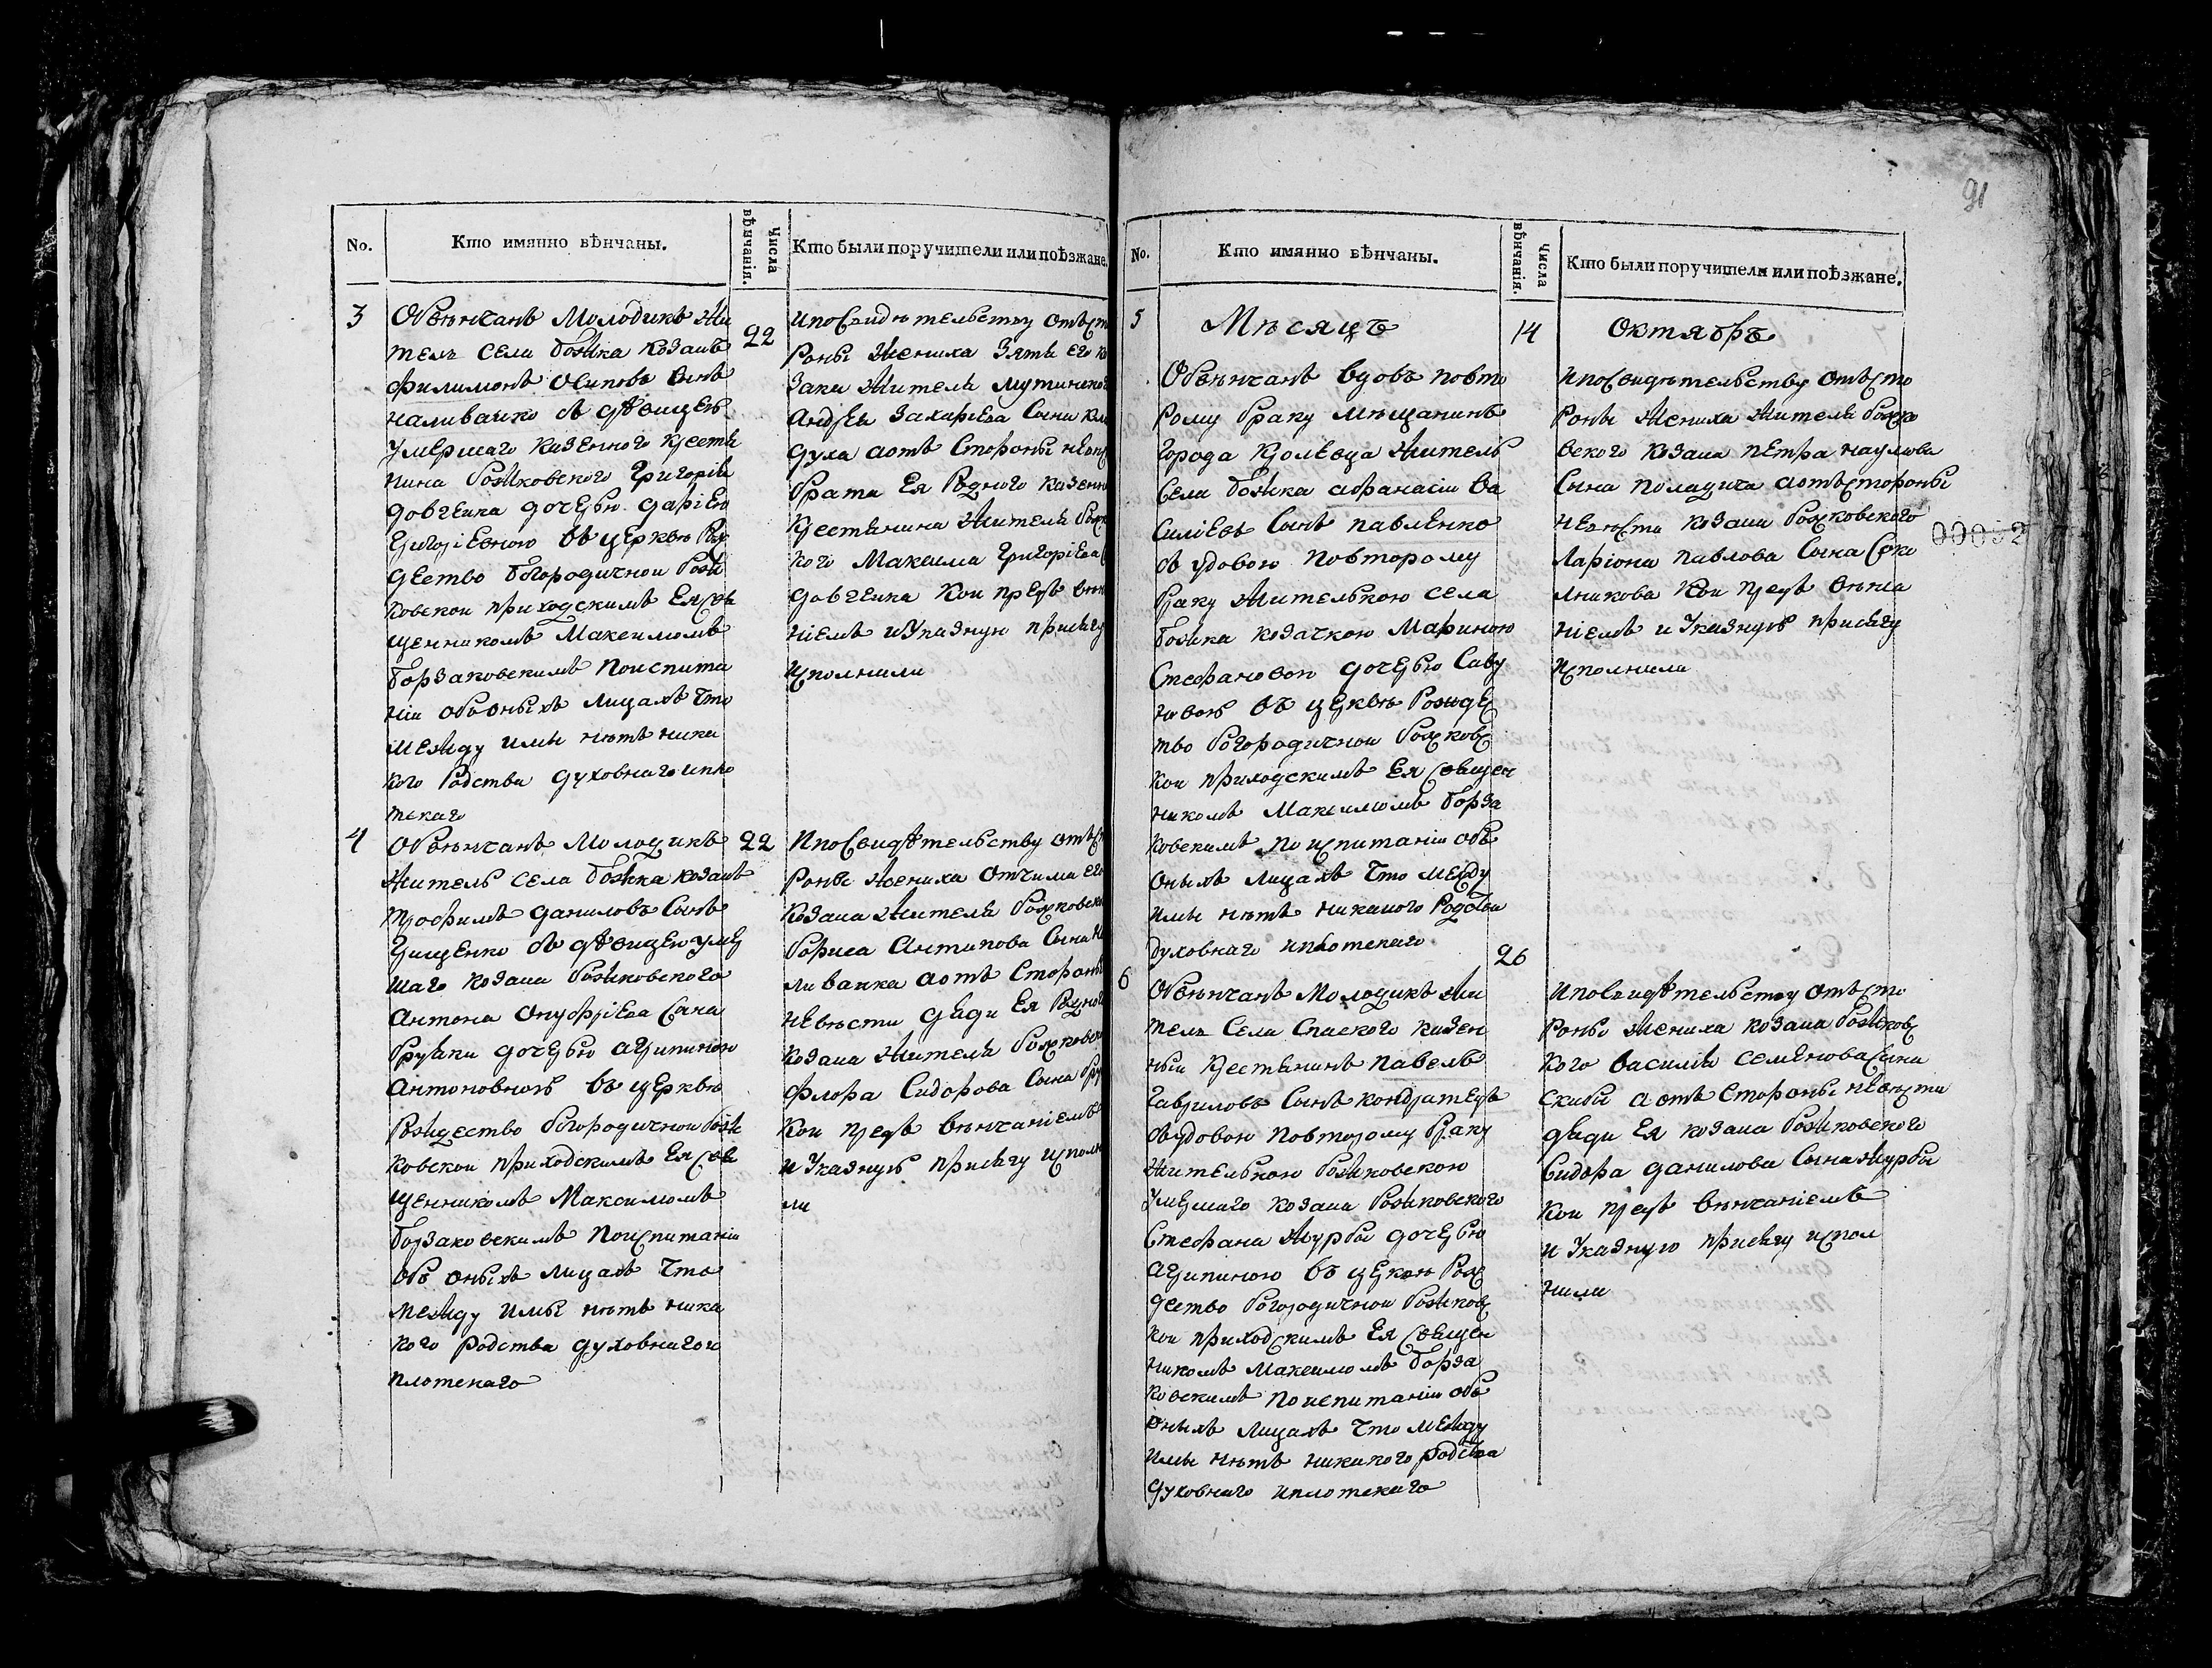 91
No.
Кто имянно вѣнчаны.
Числа вѣнчанія.
Кто были поручители или поѣзжане.
3
Обвѣнчанъ Молодикъ жи
тель села Божка козакъ
Филимонъ Осиповъ Сынъ
Наливайко съ дѣвицею
Умершаго казенного крестя
нина Божковского Григорія
Довгенка дочерью Даріею
Григоріевною въ церквѣ Рож
дество Богородичной Бож
ковской приходскимъ Ея Свя
щенникомъ Максимомъ
Борзаковскимъ по испита
ніи объ оныхъ лицахъ что
между ими нѣтъ ника
кого родства духовнаго и пло
тскаго
22
И по Свидѣтельству отъ ст
роны жениха зятя его ко
зака жителя Мутинског
Андрея Захаріева Сына
духа а отъ Стороны невѣс
брата Ея Родного казенн
Крестянина жителя Божк
кого Максима Григоріева С
Довгенка Кои предъ вѣнч
ніемъ и Указную присягу
Исполнили
4
Обвѣнчанъ Молодикъ
житель села Божка козакъ
Трофимъ Даниловъ Сынъ
Грищенко съ дѣвицею умер
шаго козака Божковского
Антона Онуфріева Сына
дочерью Агрипиною
Антоновною въ церквѣ
Рождество Богородичной Бож
ковской приходскимъ Ея Свя
щенникомъ Максимомъ
Борзаковскимъ по испитаніи
объ оныхъ лицахъ что
между ими нѣтъ ника
кого родства духовнаго и
плотскаго
22
И по Свидѣтельству отъ с
роны жениха отчима его
Козака жителя Божковск
Бориса Антипова Сына На
ливайка а отъ Стороны
невѣсти дяди Ея Родног
козака жителя Божковск
Флора Сидорова Сына
Кои предъ вѣнчаніемъ
и Указную присягу исполн
ли
No.
Кто имянно вѣнчаны.
Числа вѣнчанія.
Кто были поручители или поѣзжане.
5
Мѣсяцъ
14
Октябрь
Обвѣнчанъ вдовъ повто
рому браку мѣщанинъ
города Кролевца житель
Села Божка Афанасій Ва
силіевъ Сынъ Павленко
съ вдовою по второму
браку жителькою села
Божка козачкою Мариною
Стефановою дочерью Саву
новою въ церквѣ Рождес
тво Богородичной Божковс
кой приходскимъ Ея Священ
никомъ Максимомъ Борза
ковскимъ по испитаніи объ
оныхъ лицахъ что между
ими нѣтъ никакого родства
духовнаго и плотскаго
И по свидѣтельству отъ сто
роны жениха жителя Божко
вского козака Петра Наумова
Сына а отъ стороны
невѣсти козака Божковского
Ларіона Павлова Сына
Кои предъ вѣнча
ніемъ и Указную присягу
Исполнили
00092
6
Обвѣнчанъ Молодикъ жи
тель Села Спаского казен
ный Крестянинъ Павелъ
Гавриловъ Сынъ
съ вдовою по второму браку
жителькою Божковскою
Умершаго козака Божковского
Стефана Журбы дочерью
Агрипиною въ церквѣ Рож
дество Богородичной Божковс
кой приходскимъ Ея Священ
никомъ Максимомъ Борза
ковскимъ по испитаніи объ
оныхъ лицахъ что между
ими нѣтъ никакого родства
духовнаго и плотскаго
26
И по Свидѣтельству отъ сто
роны жениха козака Божковс
кого Василія Семенова Сына
Скибы а отъ Стороны невѣсти
дяди Ея козака Божковского
Сидора Данилова Сына Журбы
Кои предъ вѣнчаніемъ
и Указную присягу испол
нили